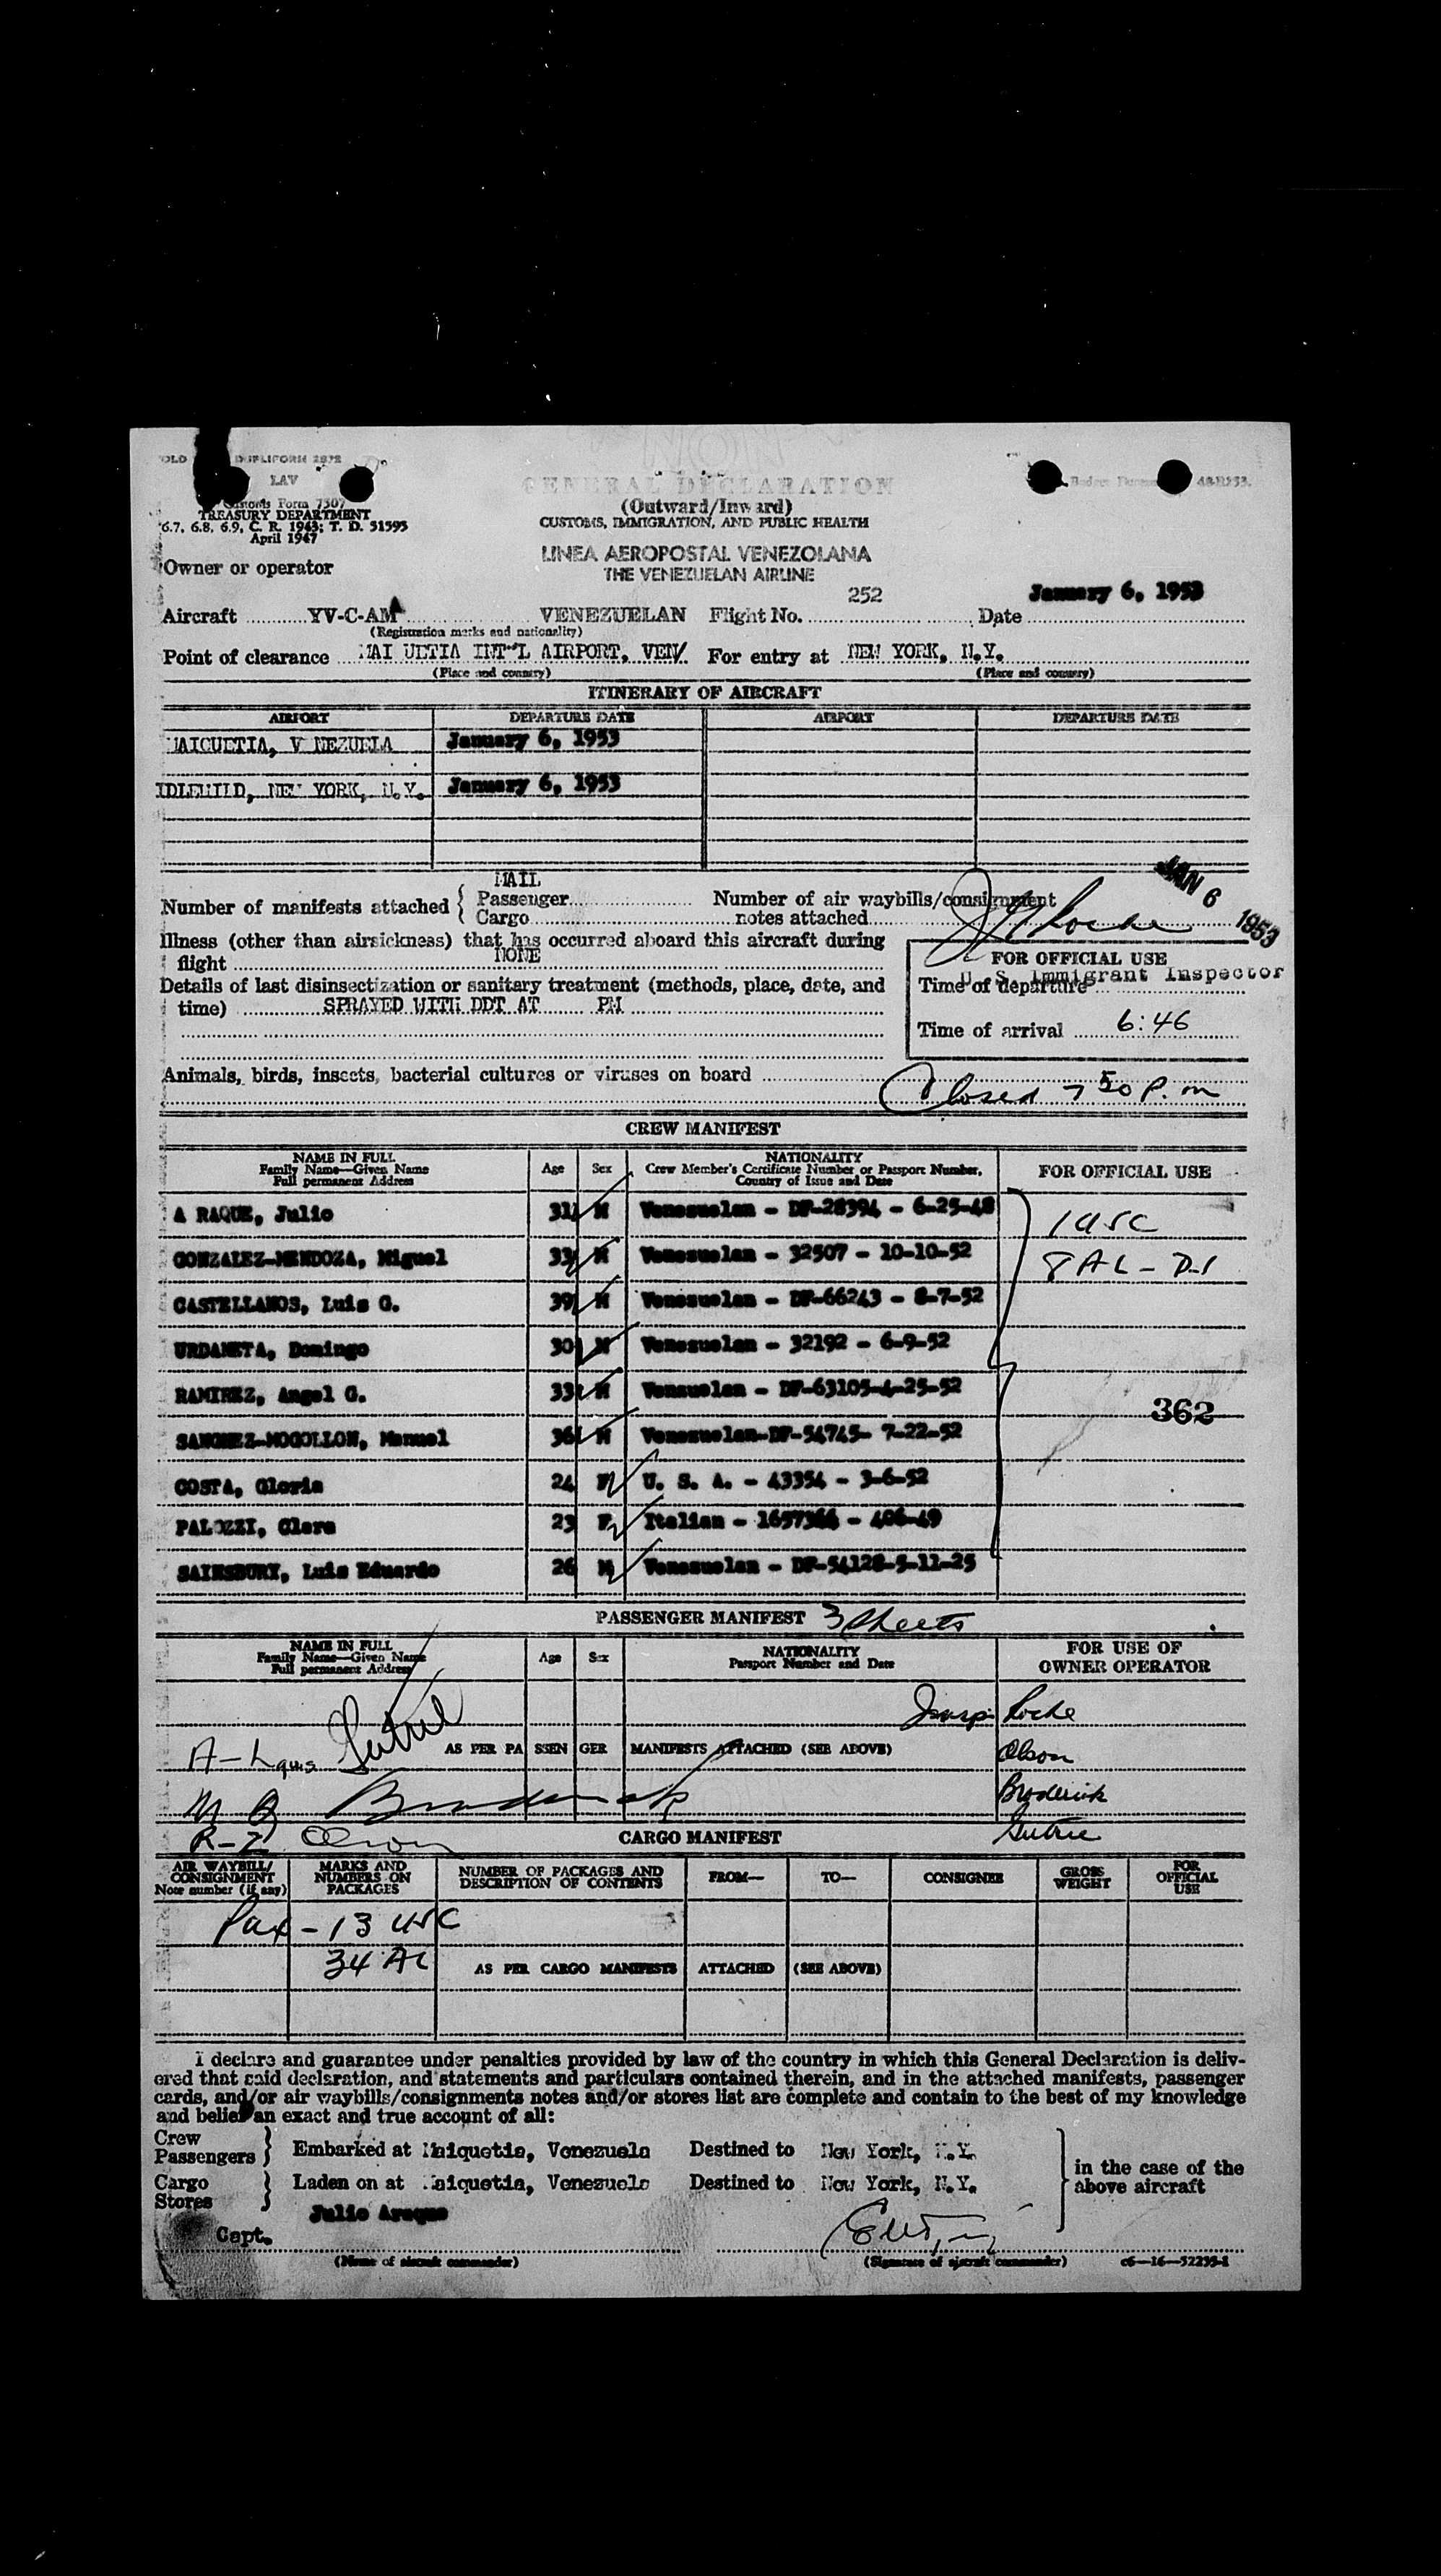 OLD DUPLIFORM 2872
LAV
Customs Form 7507
TREASURY DEPARTMENT
6.7, 6.8, 6.9, C. R. 1943; T. D. 51595
April 1947
GENERAL DECLARATION
(Outward/Inward)
CUSTOMS, IMMIGRATION, AND PUBLIC HEALTH
LINEA AEROPOSTAL VENEZOLANA
THE VENEZUELAN AIRLINE
Owner or operator
Aircraft YV-C-AMA VENEZUELAN Flight No. 252 Date January 6, 1953
(Registration marks and nationality)
Point of clearance MAI UETIA INT'L AIRPORT, VEN/ For entry at NEW YORK, N.Y.
(Place and country) (Place and country)
ITINERARY OF AIRCRAFT
AIRPORT DEPARTURE DATE AIRPORT DEPARTURE DATE
MAIQUETIA, V NEZUELA January 6, 1953
IDLEWILD, NEW YORK, N.Y. January 6, 1953
JAN 6 1953
MAIL
Number of manifests attached { Passenger Number of air waybills/consignment
Cargo notes attached
Illness (other than airsickness) that has occurred aboard this aircraft during
flight NONE
FOR OFFICIAL USE
U. S. Immigrant Inspector
Details of last disinsectization or sanitary treatment (methods, place, date, and
time) SPRAYED WITH DDT AT PM
Time of departure
Time of arrival 6:46
Animals, birds, insects, bacterial cultures or viruses on board
Closed 7 50 P. m
CREW MANIFEST
NAME IN FULL
Family Name—Given Name
Full permanent Address
Age Sex
NATIONALITY
Crew Member's Certificate Number or Passport Number,
Country of Issue and Date
FOR OFFICIAL USE
A RAQUE, Julio 31 M Venezuelan - DF-28394 - 6-25-48
1 USC
GONZALEZ-MENDOZA, Miguel 33 M Venezuelan - 32507 - 10-10-52
8 AL - D-1
CASTELLANOS, Luis G. 39 M Venezuelan - DF-66243 - 8-7-52
URDANETA, Domingo 30 M Venezuelan - 32192 - 6-9-52
RAMIREZ, Angel G. 33 M Venzuelan - DF-63105-4-25-52
362
SANCHEZ-MOGOLLON, Manuel 36 M Venezuelan-DF-54745- 7-22-52
COSTA, Gloria 24 F U. S. A. - 43354 - 3-6-52
PALOZZI, Clara 23 F Italian - 1657366 - 406-49
SAINSBURY, Luis Eduardo 26 M Venezuelan - DF-54128-5-11-25
PASSENGER MANIFEST 3 sheets
NAME IN FULL
Family Name—Given Name
Full permanent Address
Age Sex
NATIONALITY
Passport Number and Date
FOR USE OF
OWNER OPERATOR
Insp. Roche
AS PER PA SSEN GER MANIFESTS ATTACHED (SEE ABOVE)
Olson
Broderick
Broderick
R-Z Olson
CARGO MANIFEST
Gutrie
AIR WAYBILL/
CONSIGNMENT
Note number (if any)
MARKS AND
NUMBERS ON
PACKAGES
NUMBER OF PACKAGES AND
DESCRIPTION OF CONTENTS
FROM— TO— CONSIGNEE
GROSS
WEIGHT
FOR
OFFICIAL
USE
Pax - 13 USC
34 AL
AS PER CARGO MANIFESTS ATTACHED (SEE ABOVE)
I declare and guarantee under penalties provided by law of the country in which this General Declaration is deliv-
ered that said declaration, and statements and particulars contained therein, and in the attached manifests, passenger
cards, and/or air waybills/consignments notes and/or stores list are complete and contain to the best of my knowledge
and belief an exact and true account of all:
Crew
Passengers } Embarked at Maiquetia, Venezuela Destined to New York, N.Y.
in the case of the
above aircraft
Cargo
Stores } Laden on at Maiquetia, Venezuela Destined to New York, N.Y.
Capt. Julio Araque
(Name of aircraft commander) (Signature of aircraft commander) c6—16—52255-1